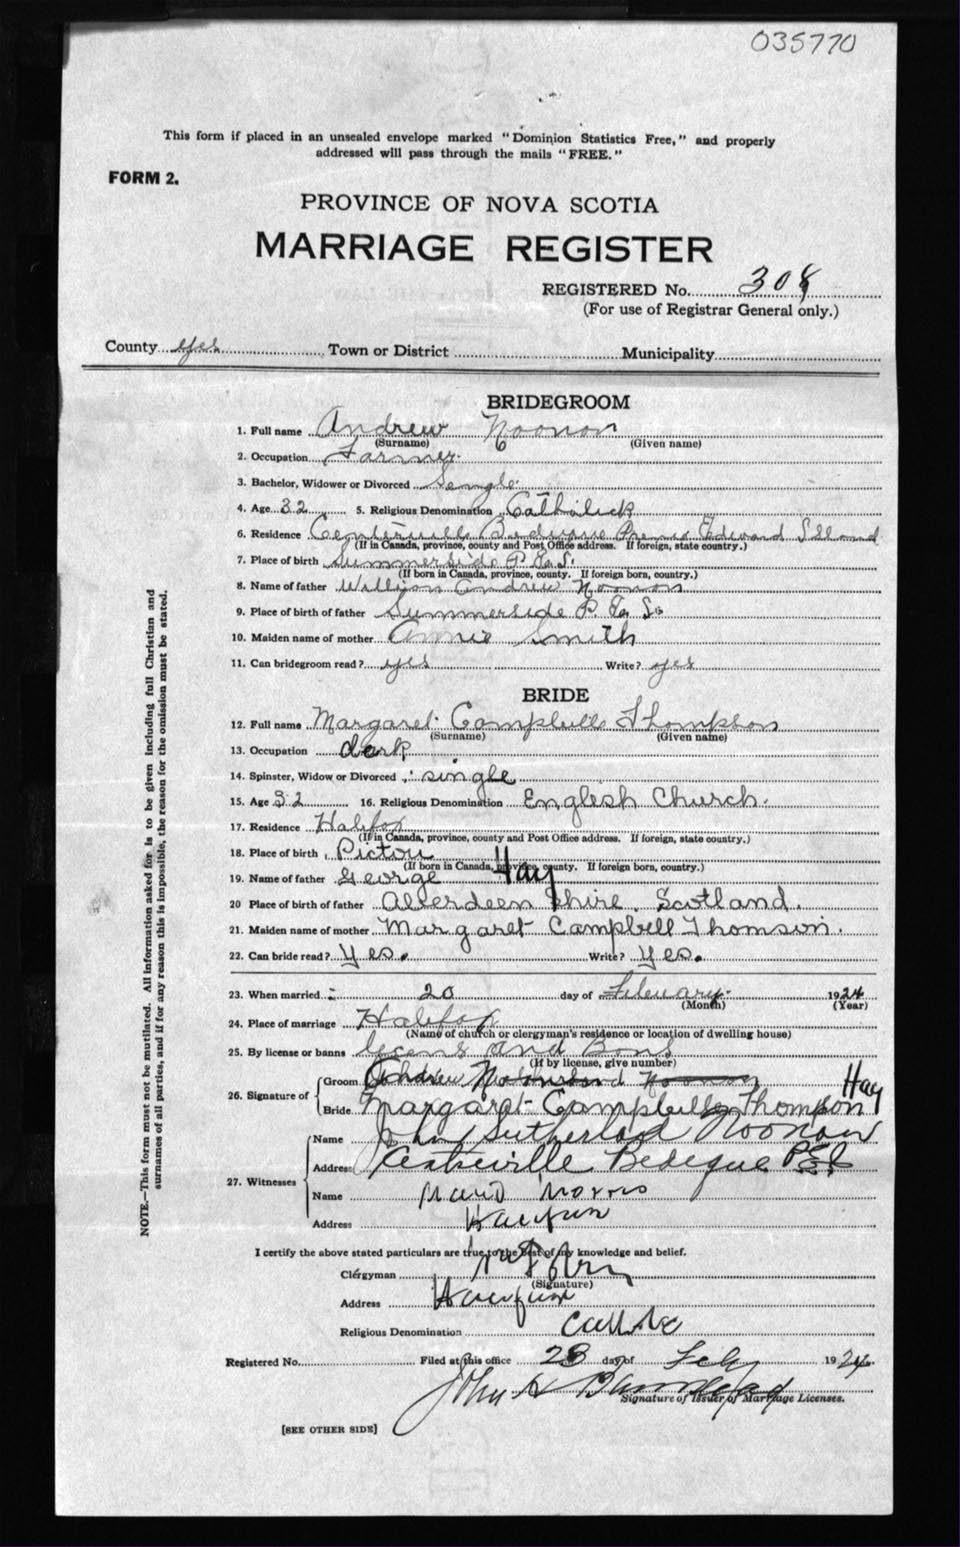 035770
This form if placed in an unsealed envelope marked "Dominion Statistics Free," and properly
addressed will pass through the mails "FREE."
FORM 2.
PROVINCE OF NOVA SCOTIA
MARRIAGE REGISTER
REGISTERED No. 308
(For use of Registrar General only.)
County yes Town or District Municipality
BRIDEGROOM
1. Full name Andrew Noonon
(Surname) (Given name)
2. Occupation Farmer
3. Bachelor, Widower or Divorced Sengle
4. Age 32 5. Religious Denomination Catholick
6. Residence Bedeque Edward
(If in Canada, province, county and Post Office address. If foreign, state country.)
7. Place of birth Summerside P.
(If born in Canada, province, county. If foreign born, country.)
8. Name of father Andrew Noonon
9. Place of birth of father Summerside P.
10. Maiden name of mother Annie Smith
11. Can bridegroom read? yes Write? yes
BRIDE
12. Full name Margaret Campbelle Thompson
(Surname) (Given name)
13. Occupation clark
14. Spinster, Widow or Divorced single
15. Age 32 16. Religious Denomination Englesh Church.
17. Residence Halifax
(If in Canada, province, county and Post Office address. If foreign, state country.)
18. Place of birth Pictou
(If born in Canada, province, county. If foreign born, country.)
19. Name of father George Hay
20 Place of birth of father Alberdeen Shire, Scotland.
21. Maiden name of mother Margaret Campbell Thomson.
22. Can bride read? Yes. Write? Yes.
23. When married 20 day of February 1924
(Month) (Year)
24. Place of marriage Halifax
(Name of church or clergyman's residence or location of dwelling house)
25. By license or banns and
(If by license, give number)
26. Signature of Groom
Bride Margaret Campbelle Thompson Hay
27. Witnesses Name John Sutherland Noonan
Address Centreville Bedeque P E I
Name Morris
Address
I certify the above stated particulars are true to the best of my knowledge and belief.
Clergyman
(Signature)
Address
Religious Denomination
Registered No. Filed at this office 28 day of Feby 1924
John
Signature of Issuer of Marriage Licenses.
[SEE OTHER SIDE]
NOTE.—This form must not be mutilated. All information asked for is to be given including full Christian and
surnames of all parties, and if for any reason this is impossible, the reason for the omission must be stated.